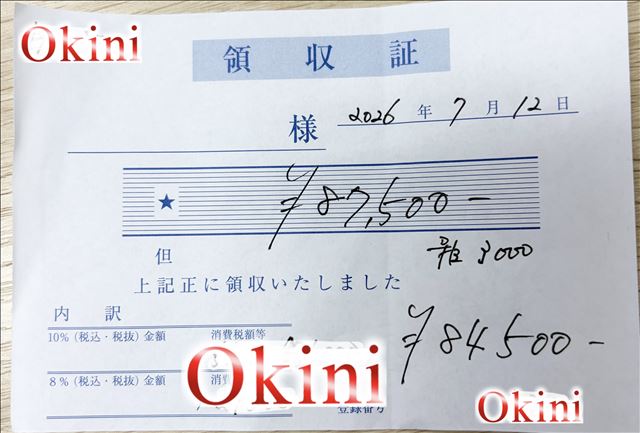 Okini
領収証
2026年7月12日
様
★ ¥87,500-
但
雑 3000
上記正に領収いたしました
内訳
¥84500-
10%(税込・税抜)金額 消費税額等
8%(税込・税抜)金額 消費
Okini
Okini
登録番号